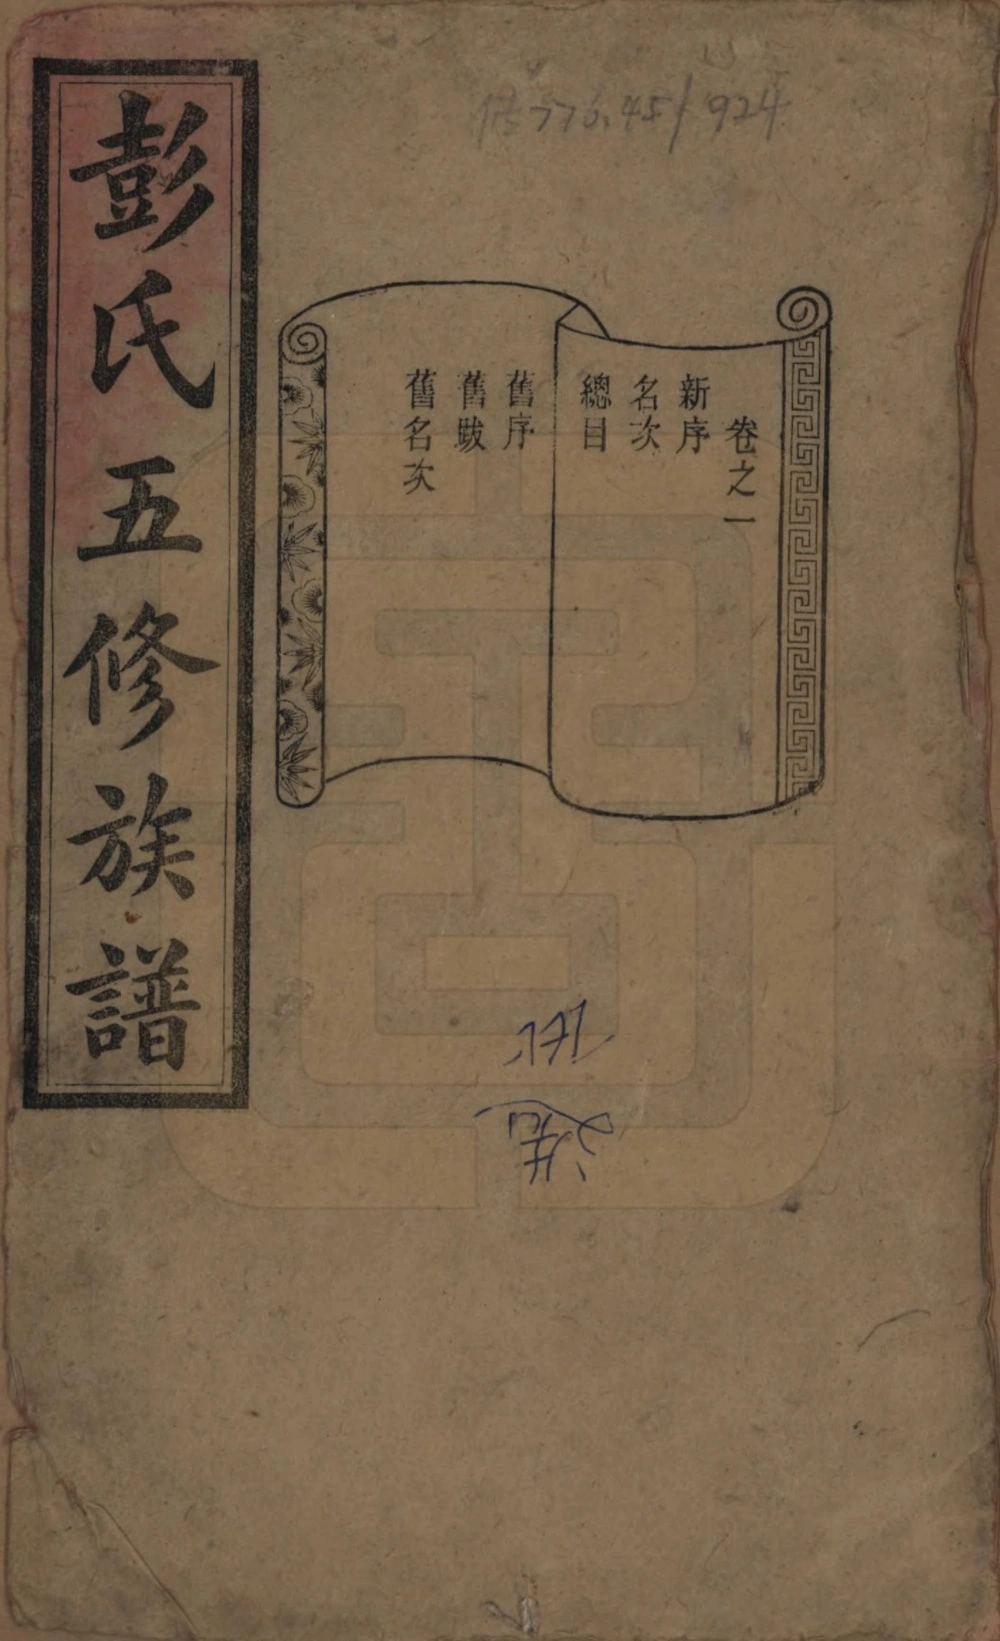 彭氏五修族譜
卷之一
新序
名次
總目
舊序
舊跋
舊名次
776.45/924